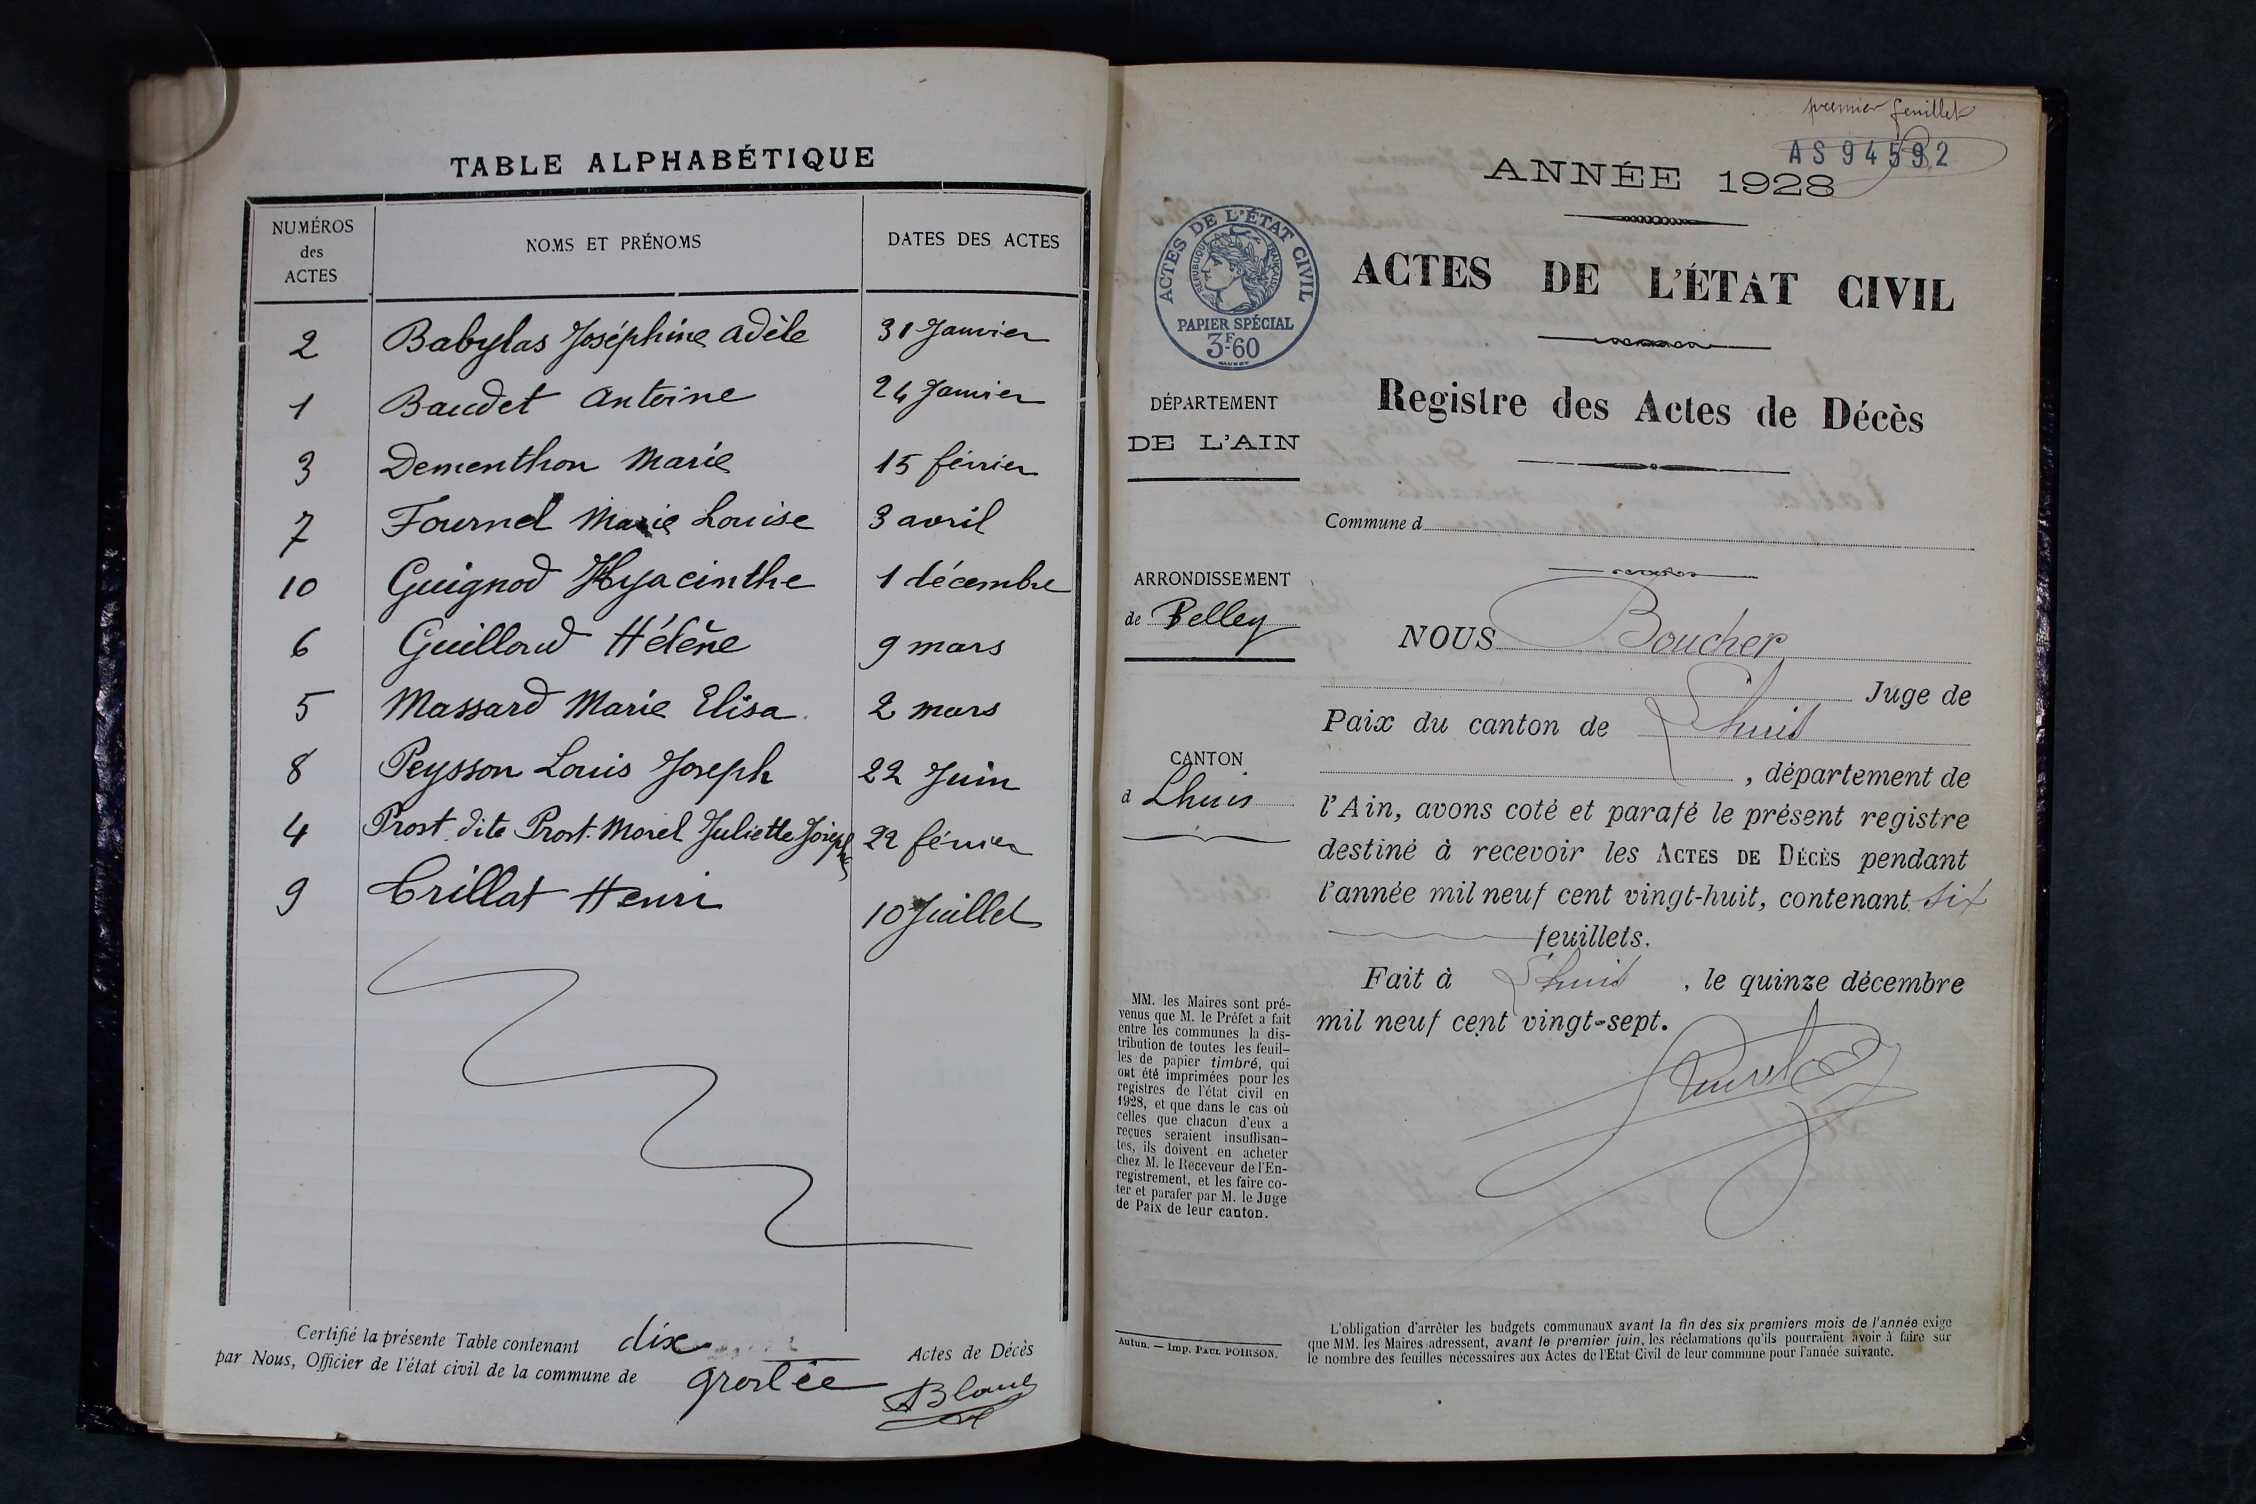 TABLE ALPHABÉTIQUE
NUMÉROS
des
ACTES
NOMS ET PRÉNOMS
DATES DES ACTES
2 Babylas Joséphine Adèle 31 Janvier
1 Baudet Antoine 24 Janvier
3 Dementhon Marie 15 février
7 Fournel Marie Louise 3 avril
10 Guignod Hyacinthe 1 décembre
6 Guilloud Hélène 9 mars
5 Massard Marie Elisa 2 mars
8 Peysson Louis Joseph 22 Juin
4 Prost dite Prost-Morel Juliette Josephe 22 février
9 Trillat Henri 10 Juillet
Certifié la présente Table contenant dix Actes de Décès
par Nous, Officier de l'état civil de la commune de Groslée
premier feuillet
AS94592
ANNÉE 1928
ACTES DE L'ÉTAT CIVIL
RÉPUBLIQUE FRANÇAISE
PAPIER SPÉCIAL
3F60
ACTES DE L'ÉTAT CIVIL
Registre des Actes de Décès
DÉPARTEMENT
DE L'AIN
Commune d
ARRONDISSEMENT
de Belley
CANTON
d Lhuis
MM. les Maires sont pré-
venus que M. le Préfet a fait
entre les communes la dis-
tribution de toutes les feuil-
les de papier timbré, qui
ont été imprimées pour les
registres de l'état civil en
1928, et que dans le cas où
celles que chacun d'eux a
reçues seraient insuffisan-
tes, ils doivent en acheter
chez M. le Receveur de l'En-
registrement, et les faire co-
ter et parafer par M. le Juge
de Paix de leur canton.
Autun. — Imp. PAUL POIRSON.
NOUS Boucher
Juge de
Paix du canton de Lhuis
, département de
l'Ain, avons coté et parafé le présent registre
destiné à recevoir les ACTES DE DÉCÈS pendant
l'année mil neuf cent vingt-huit, contenant six
feuillets.
Fait à Lhuis, le quinze décembre
mil neuf cent vingt-sept.
L'obligation d'arrêter les budgets communaux avant la fin des six premiers mois de l'année exige
que MM. les Maires adressent, avant le premier juin, les réclamations qu'ils pourraient avoir à faire sur
le nombre des feuilles nécessaires aux Actes de l'Etat Civil de leur commune pour l'année suivante.